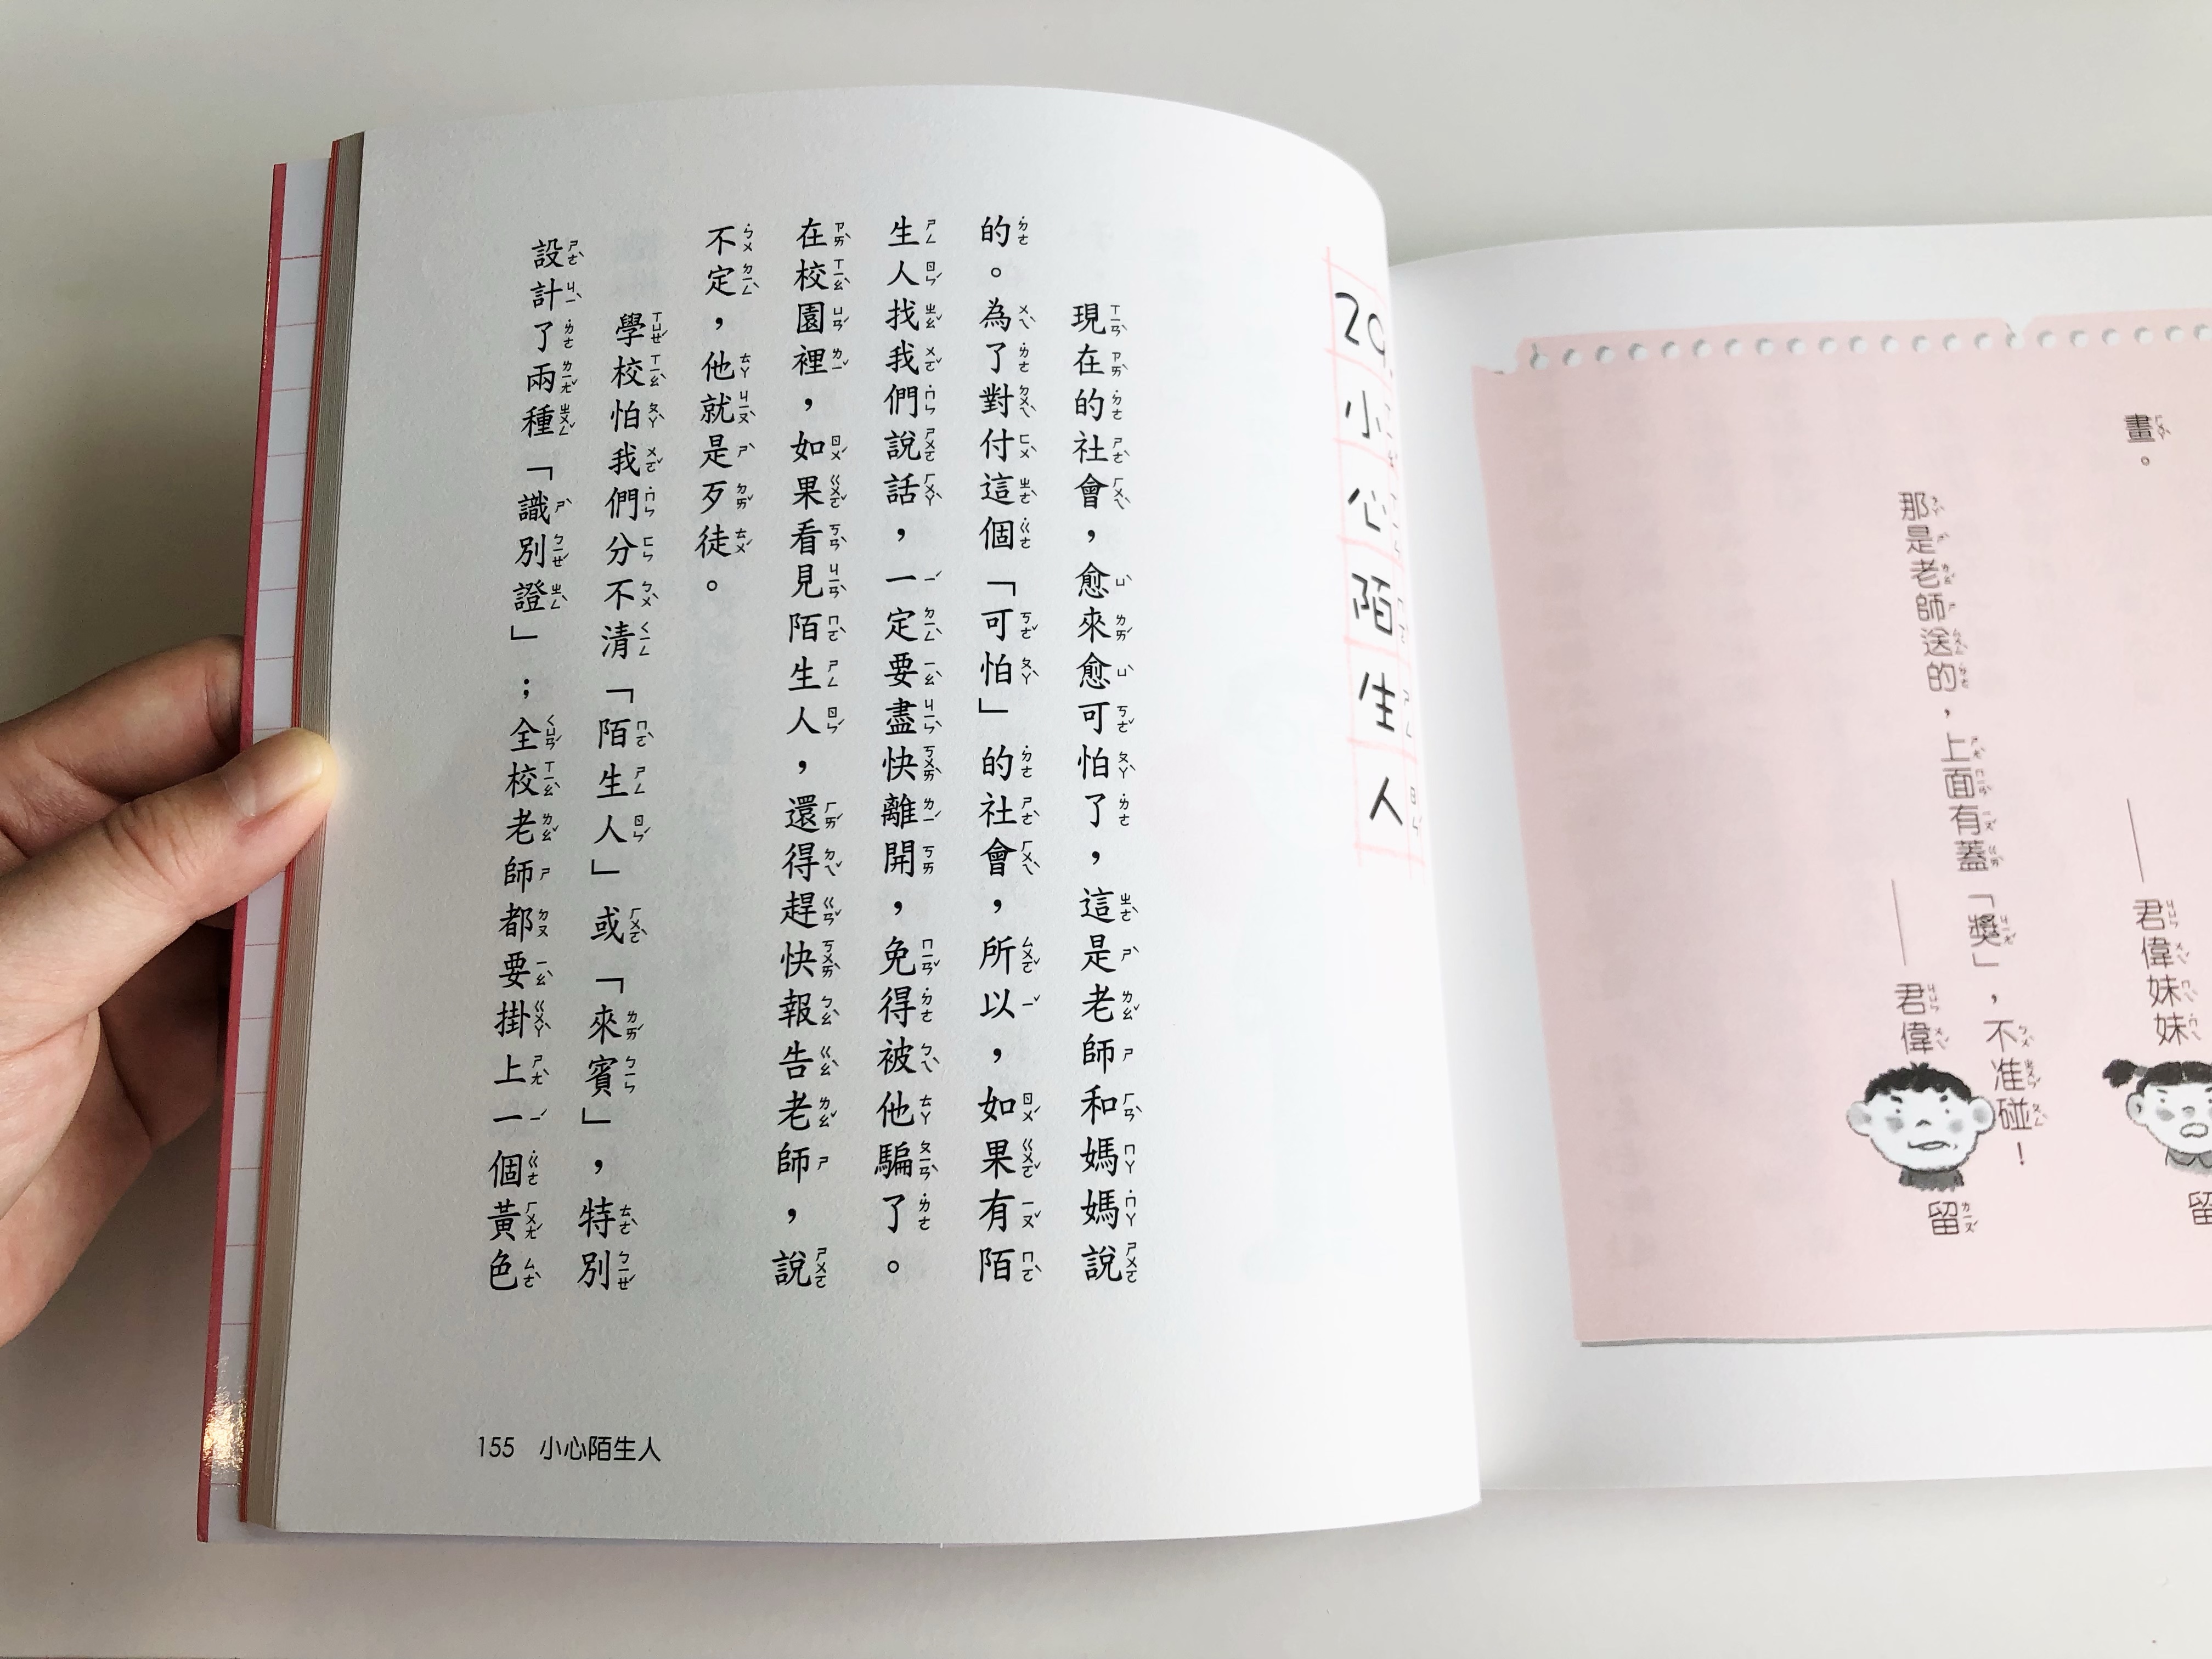 畫。
——君偉妹妹
那是老師送的,上面有蓋「獎」,不准碰!
——君偉留
小心陌生人
現在的社會,愈來愈可怕了,這是老師和媽媽說
的。為了對付這個「可怕」的社會,所以,如果有陌
生人找我們說話,一定要盡快離開,免得被他騙了。
在校園裡,如果看見陌生人,還得趕快報告老師,說
不定,他就是歹徒。
學校怕我們分不清「陌生人」或「來賓」,特別
設計了兩種「識別證」;全校老師都要掛上一個黃色
155 小心陌生人